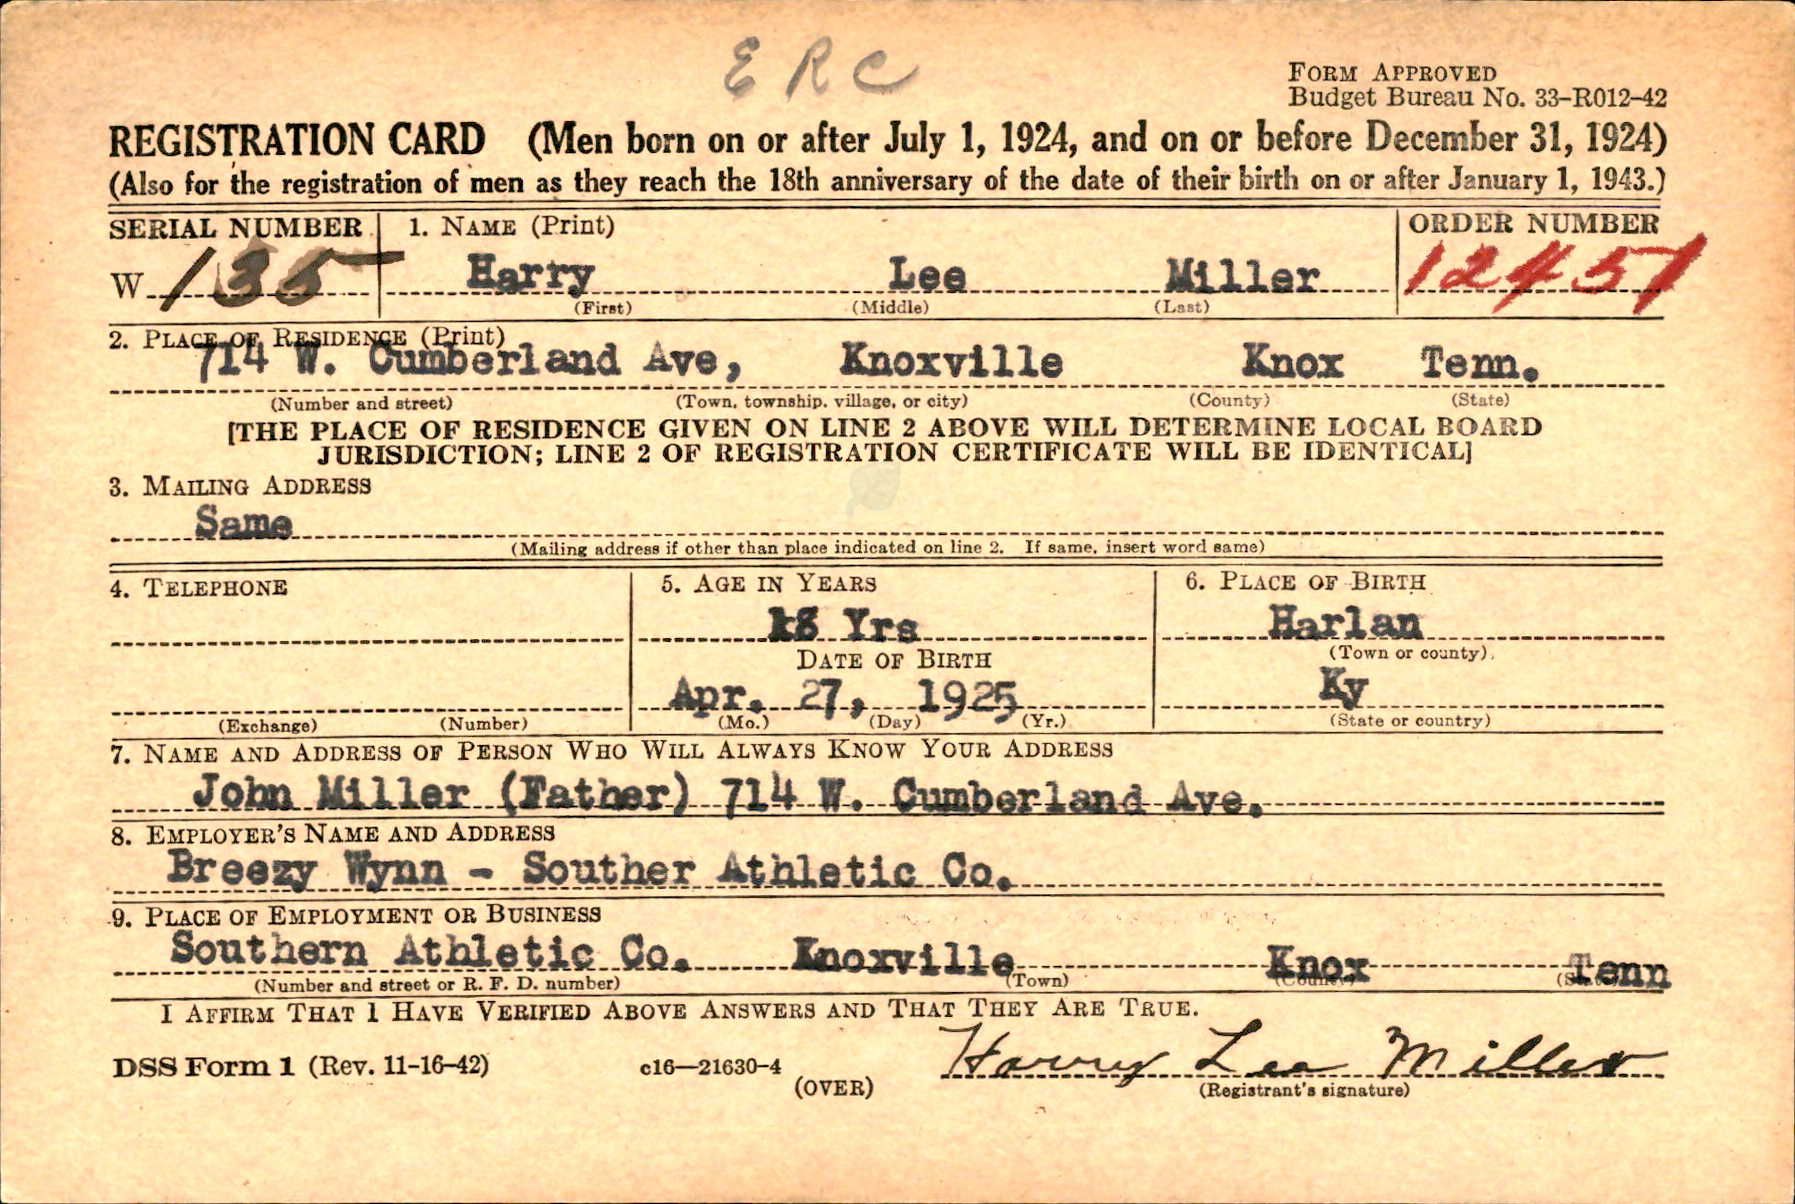 E R C
FORM APPROVED
Budget Bureau No. 33-R012-42
REGISTRATION CARD (Men born on or after July 1, 1924, and on or before December 31, 1924)
(Also for the registration of men as they reach the 18th anniversary of the date of their birth on or after January 1, 1943.)
SERIAL NUMBER 1. NAME (Print) ORDER NUMBER
W 135 Harry Lee Miller 12451
(First) (Middle) (Last)
2. PLACE OF RESIDENCE (Print)
714 W. Cumberland Ave, Knoxville Knox Tenn.
(Number and street) (Town, township, village, or city) (County) (State)
[THE PLACE OF RESIDENCE GIVEN ON LINE 2 ABOVE WILL DETERMINE LOCAL BOARD
JURISDICTION; LINE 2 OF REGISTRATION CERTIFICATE WILL BE IDENTICAL]
3. MAILING ADDRESS
Same
(Mailing address if other than place indicated on line 2. If same, insert word same)
4. TELEPHONE 5. AGE IN YEARS 6. PLACE OF BIRTH
18 Yrs Harlan
DATE OF BIRTH (Town or county)
Apr. 27, 1925 Ky
(Exchange) (Number) (Mo.) (Day) (Yr.) (State or country)
7. NAME AND ADDRESS OF PERSON WHO WILL ALWAYS KNOW YOUR ADDRESS
John Miller (Father) 714 W. Cumberland Ave.
8. EMPLOYER'S NAME AND ADDRESS
Breezy Wynn - Souther Athletic Co.
9. PLACE OF EMPLOYMENT OR BUSINESS
Southern Athletic Co. Knoxville Knox Tenn
(Number and street or R. F. D. number) (Town) (County) (State)
I AFFIRM THAT I HAVE VERIFIED ABOVE ANSWERS AND THAT THEY ARE TRUE.
DSS Form 1 (Rev. 11-16-42) c16—21630-4 Harry Lee Miller
(OVER) (Registrant's signature)